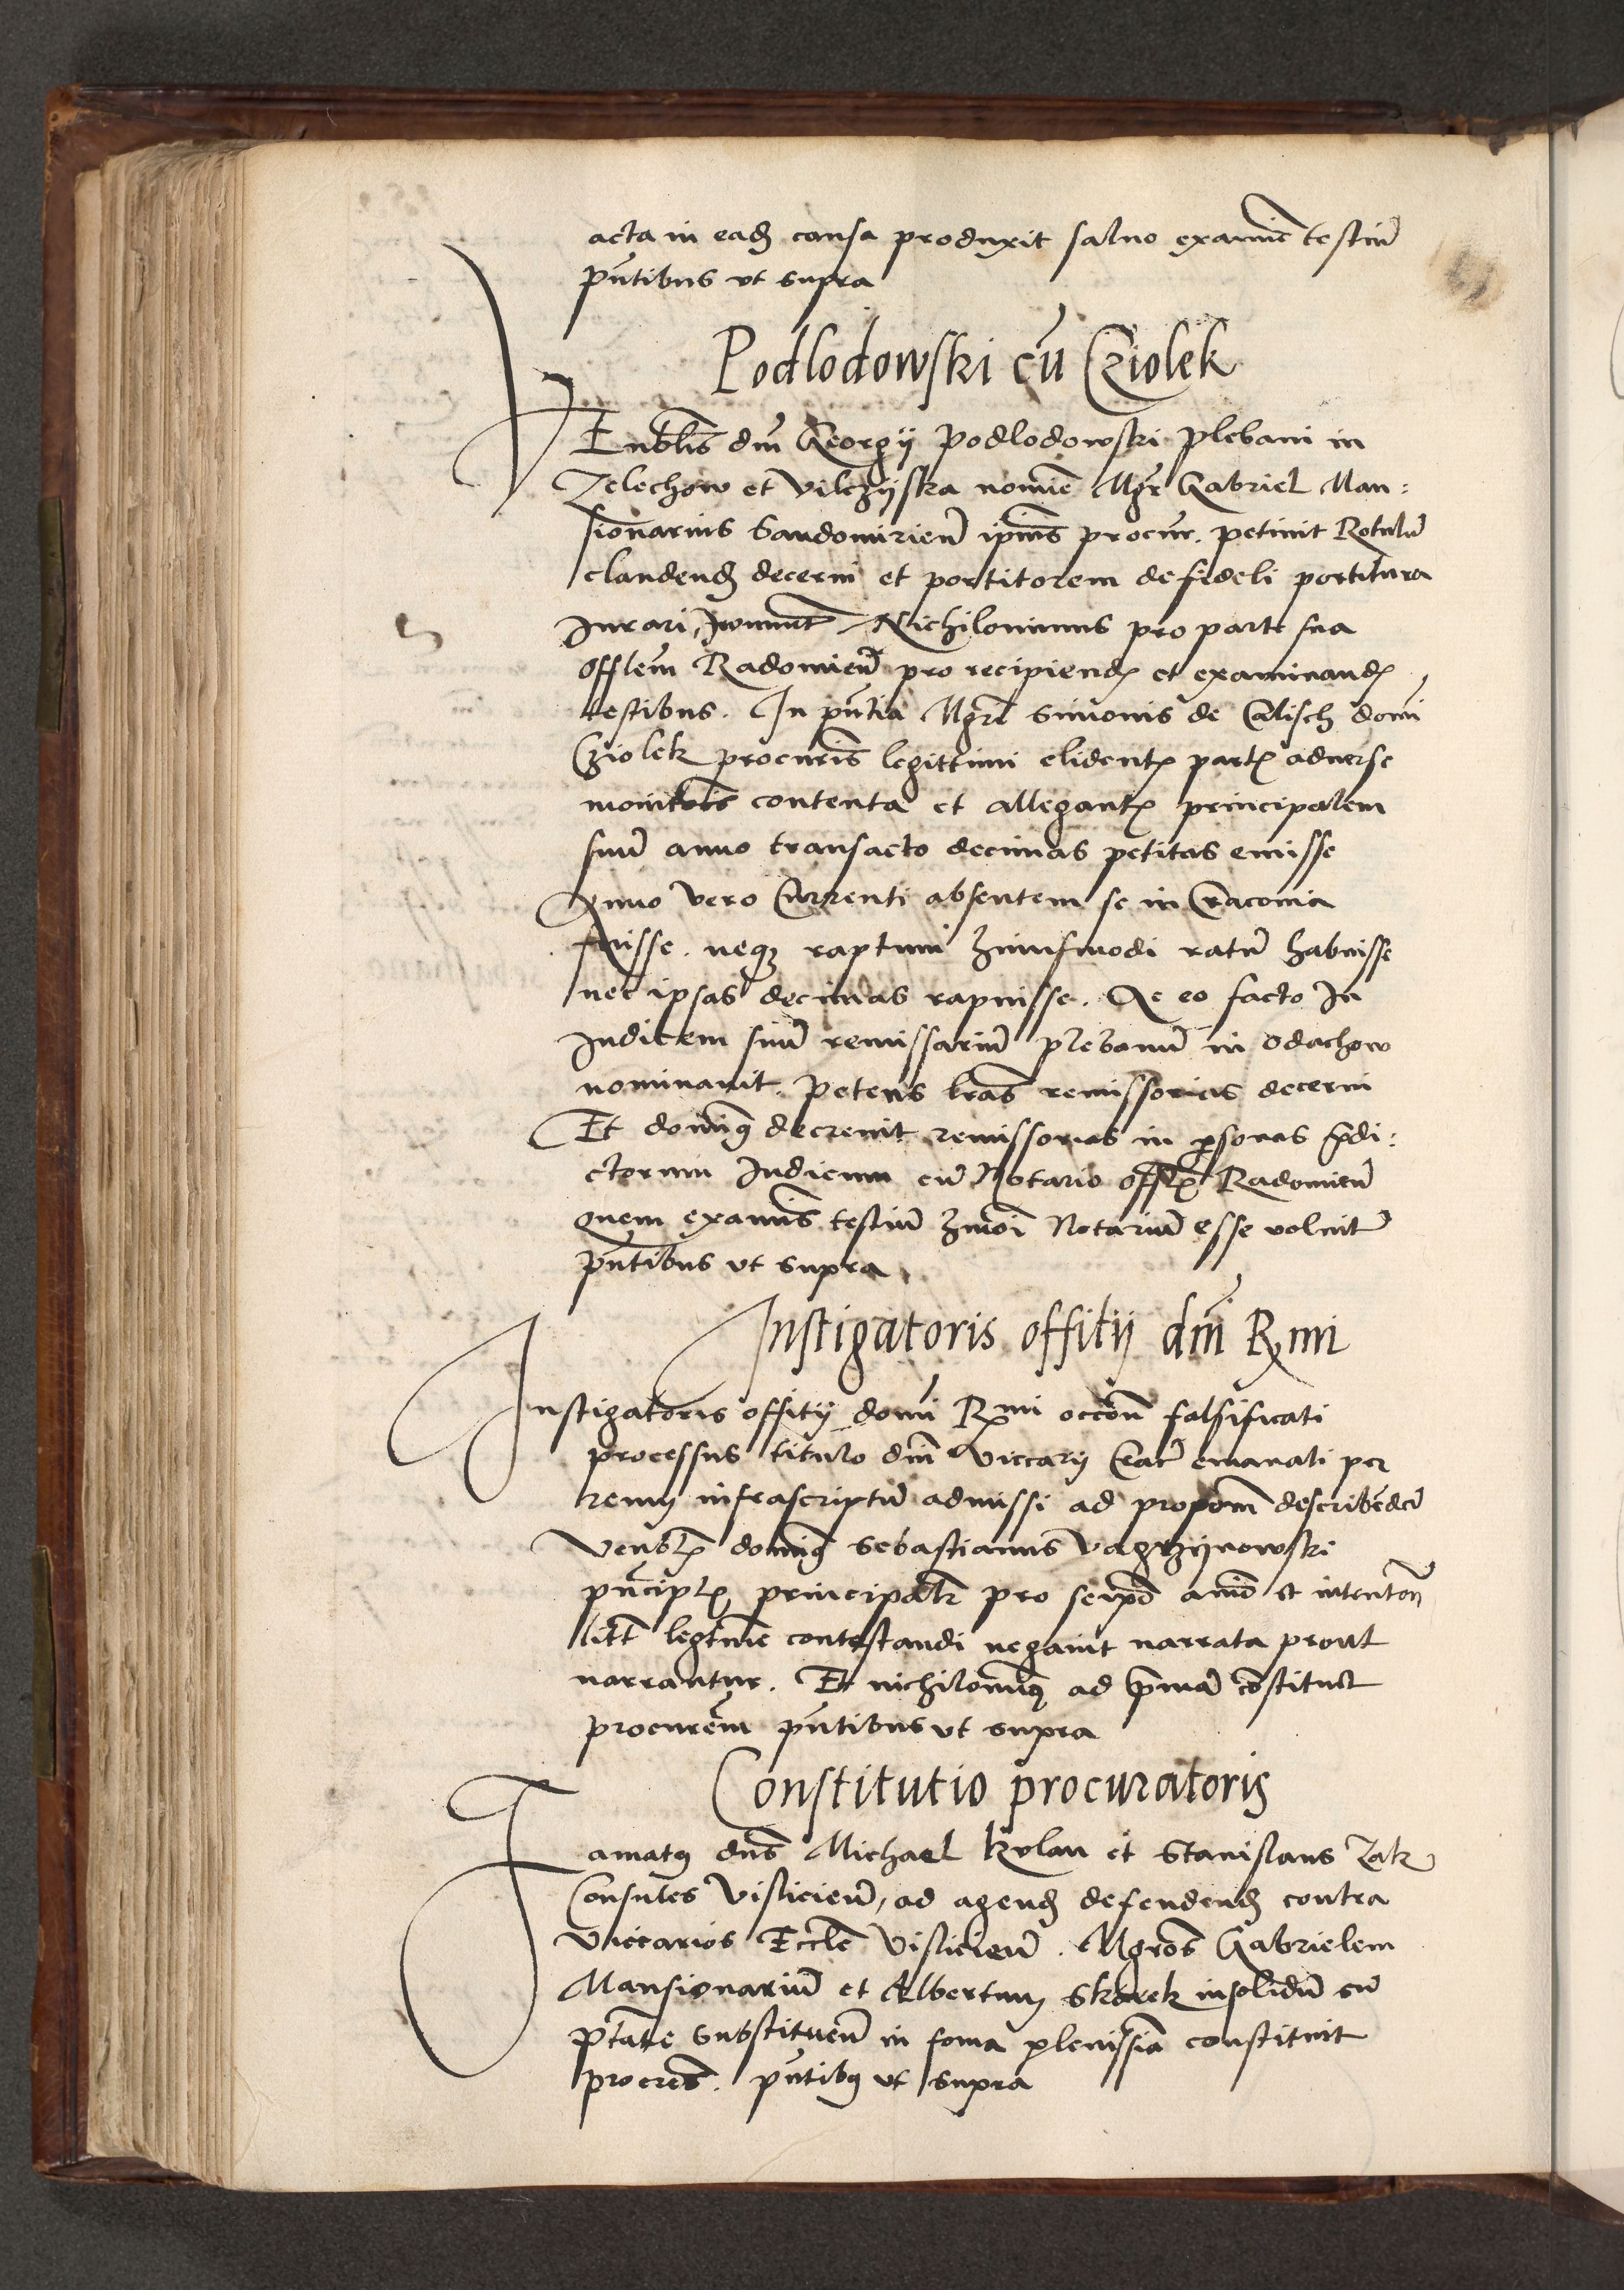 acta in eadē causa produxit saluo examīe testiū
pn̄tibus vt supra
Podlodowski cū Cziolek
VEn̄blis dn̄i Georgij Podlodowski plebani in
Zelechow et Vilczijska nomīe Mgr̄ Gabriel Man:
sionarius Sandomirien̄ ipīus procur̄. petiuit Rotulū
claudendū decerni et portitorem de fideli portitura
Iurari, Nichilominus pro parte sua
offlēm Radomien̄ pro recipiend̄ et examinand̄
testibus. In pn̄tia Mgrī Simonis de Calisch domī
Cziolek procurīs legittimi elident̄ part̄ aduerse
contenta et allegant̄ principalem
suū anno transacto decimas petitas emisse
Anno vero Currenti absentem se in Craconia
fuisse. neqʒ raptum huiusmodi ratū habuisse
nec ipsas decimas rapuisse. Ac eo facto In
Iudicem suū remissariū plebanū in Odachow
nominauit. petens lrās remissorias decerni
Et domīꝰ decreuit remissorias in ꝑsonas p̄di:
ctorum Iudicum cū Notario offlīs Radomien̄
Quem examīs testiū hmōi Notariū esse voluit
pn̄tibus vt supra
Instigatoris offitij dn̄i R̄mi
Instigatoris offitij domī R̄mi occōn̄ falsificati
processus titulo dn̄i viccarij Crac̄ emanati per
reum infrascriptū admissi ad propōm̄ describēdā
Ven̄blis domīꝰ Sebastianus Vagrzijnowski
principalr̄ pro seipō aīō et intentōn̄
litt̄ legtīme contestandi negauit narrata prout
narrantur. Et nichilomīꝰ ad pr̄imā cōstituit
procurēm pn̄tibus vt supra
Constitutio procuratoris
Famatꝰ dn̄s Michael kulan et Stanislaus Zak
Consules Vislicien̄, ad agend̄ defendend̄ contra
viccarios Eccle͞ Vislicien̄. Mgrōs Gabrielem
Mansionariū et Albertum Skorek insolidū cū
ptāte substituen̄ in forma plenissīa constituit
procrēs. pn̄tibꝰ vt supra